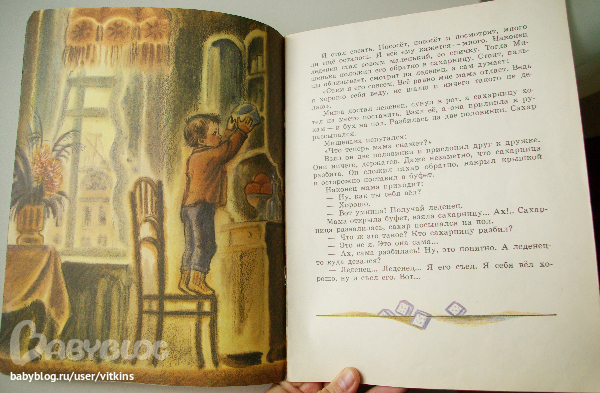 И стал сосать. Пососёт, пососёт и посмотрит, много
ли ещё осталось. И всё ему кажется — много. Наконец
леденец стал совсем маленький, со спичку. Тогда Ми-
шенька положил его обратно в сахарницу. Стоит, паль-
цы облизывает, смотрит на леденец, а сам думает:
«Съем я его совсем. Всё равно мне мама отдаст. Ведь
я хорошо себя веду, не шалю и ничего такого не де-
лаю».
Миша достал леденец, сунул в рот, а сахарницу хо-
тел на место поставить. Взял её, а она прилипла к ру-
кам — и бух на пол. Разбилась на две половинки. Сахар
рассыпался.
Мишенька испугался:
«Что теперь мама скажет?»
Взял он две половинки и прислонил друг к дружке.
Они ничего, держатся. Даже незаметно, что сахарница
разбита. Он сложил сахар обратно, накрыл крышкой
и осторожно поставил в буфет.
Наконец мама приходит:
— Ну, как ты себя вёл?
— Хорошо.
— Вот умница! Получай леденец.
Мама открыла буфет, взяла сахарницу... Ах!.. Сахар-
ница развалилась, сахар посыпался на пол.
— Что ж это такое? Кто сахарницу разбил?
— Это не я. Это она сама...
— Ах, сама разбилась! Ну, это понятно. А леденец-
то куда девался?
— Леденец... Леденец... Я его съел. Я себя вёл хо-
рошо, ну и съел его. Вот...
BABYBLOG
babyblog.ru/user/vitkins